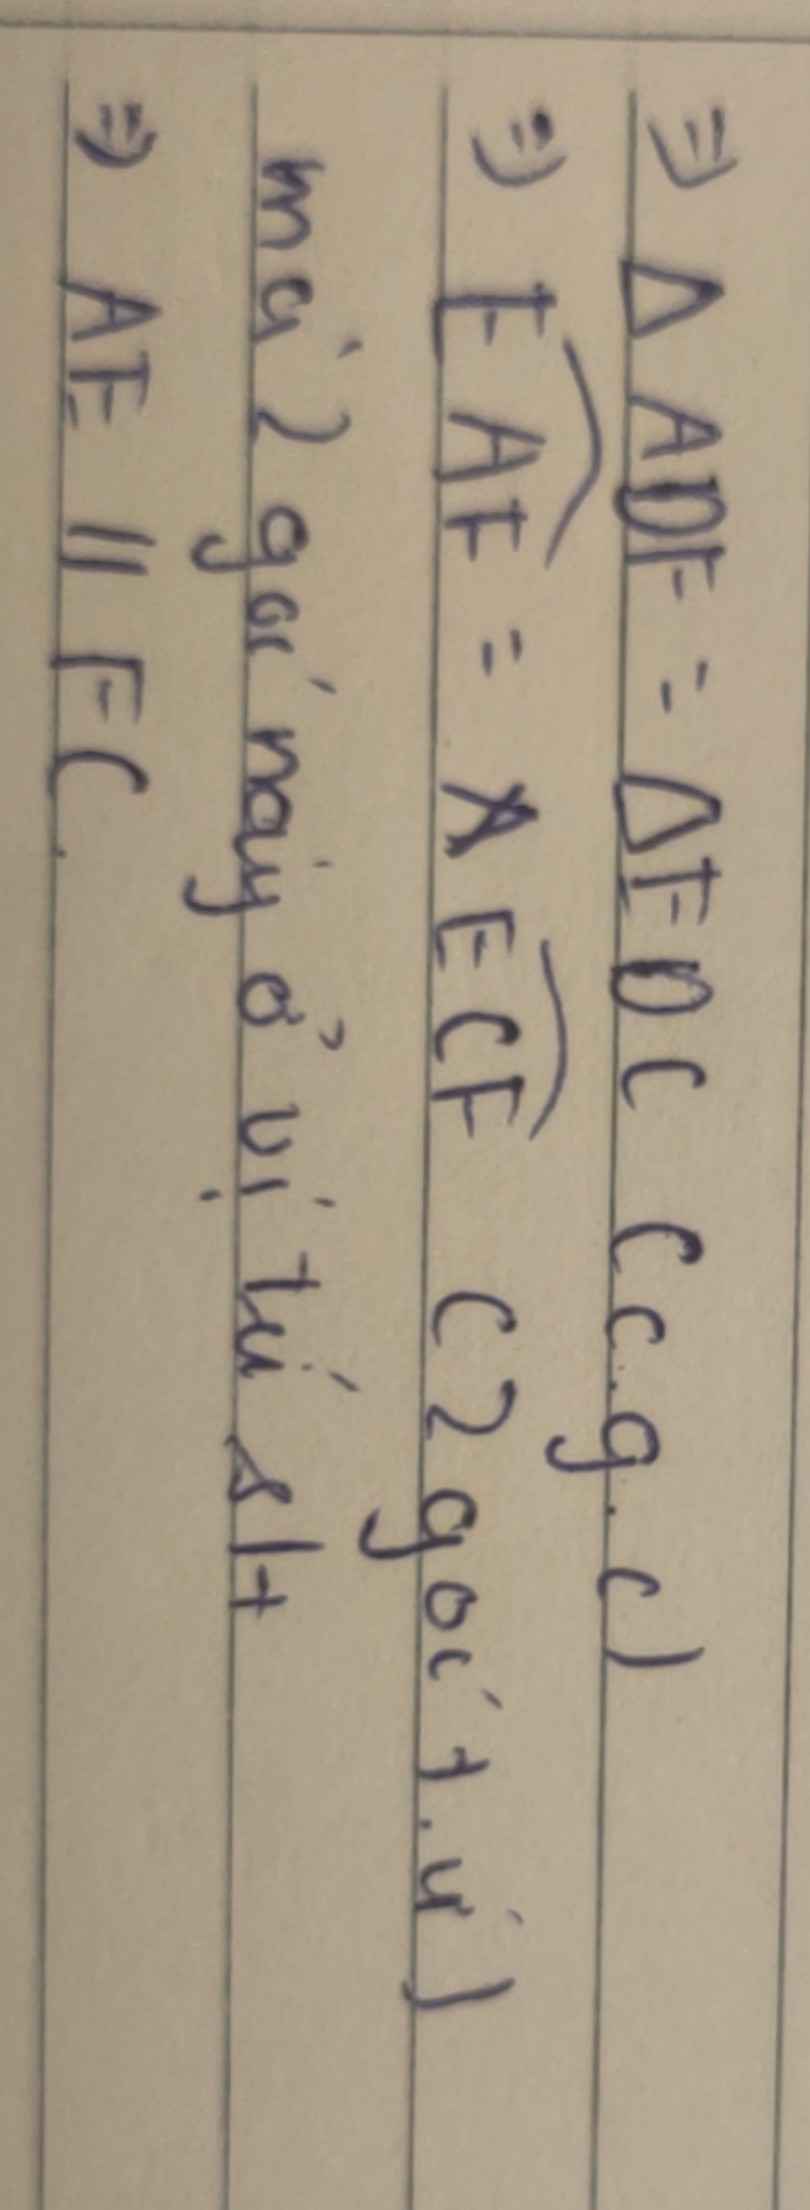 => Δ ADF = Δ EDC (c.g.c)
=> EAF = ECF (2 góc t.ứ)
mà 2 góc này ở vị trí slt
=> AE // FC